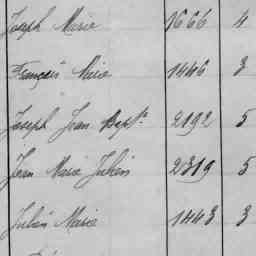 Joseph Marie 1666 4
François Marie 1446 3
Joseph Jean Bapte. 2192 5
Jean Marie Julien 2319 5
Julien Marie 1443 3